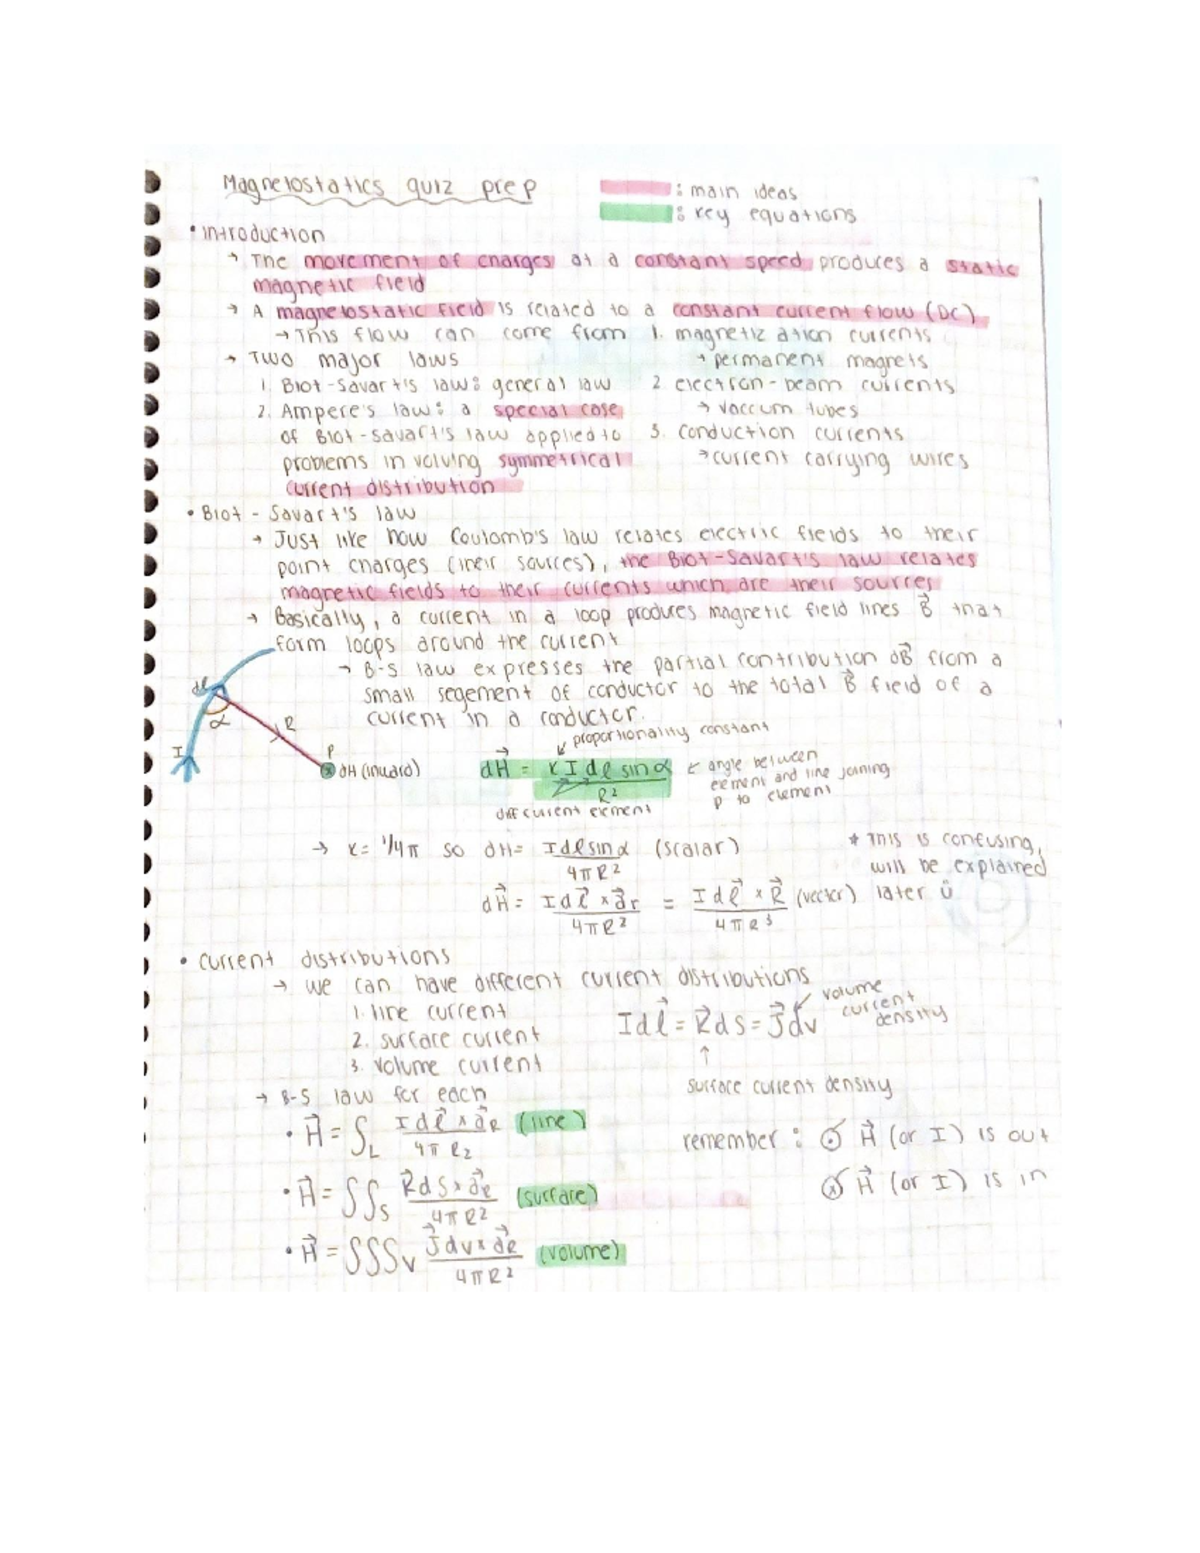 Magnetostatics quiz prep
: main ideas
: key equations
• Introduction
→ The movement of charges at a constant speed produces a static
magnetic field
→ A magnetostatic field is related to a constant current flow (DC)
→ This flow can come from 1. magnetization currents
→ permanent magnets
→ Two major laws
1. Biot-Savart's law: general law
2. electron-beam currents
2. Ampere's law: a special case
→ vaccum tubes
of Biot-Savart's law applied to
3. conduction currents
problems involving symmetrical
→ current carrying wires
current distribution
• Biot-Savart's law
→ Just like how Coulomb's law relates electric fields to their
point charges (their sources), the Biot-Savart's law relates
magnetic fields to their currents which are their sources
→ Basically, a current in a loop produces magnetic field lines B⃗ that
form loops around the current
→ B-S law expresses the partial contribution dB⃗ from a
small segement of conductor to the total B⃗ field of a
current in a conductor.
dl
α
R
I
P
dH (inward)
proportionality constant
dH⃗ = K I dl sinα / R²
← angle between
element and line joining
P to element
diff current element
→ K = 1/4π so dH = I dl sinα / 4πR² (scalar)
* This is confusing,
will be explained
later ü
dH⃗ = I dl⃗ × a⃗r / 4πR² = I dl⃗ × R⃗ / 4πR³ (vector)
• Current distributions
→ we can have different current distributions
1. line current
2. surface current
3. volume current
I dl⃗ = K⃗ dS = J⃗ dv
volume
current
density
↑
surface current density
→ B-S law for each
• H⃗ = ∫L I dl⃗ × a⃗R / 4π R2 (line)
• H⃗ = ∫∫S K⃗ dS × a⃗R / 4πR² (surface)
• H⃗ = ∫∫∫V J⃗ dv × a⃗R / 4πR² (volume)
remember: ⊙ H⃗ (or I) is out
⊗ H⃗ (or I) is in